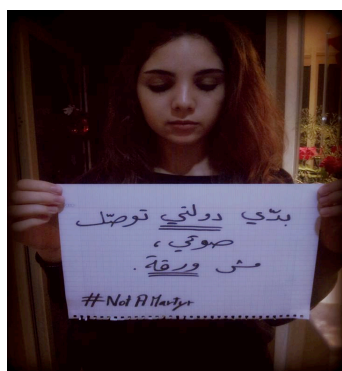 بدّي دولتي توصّل
صوتي،
مش ورقة.
#Not A Martyr